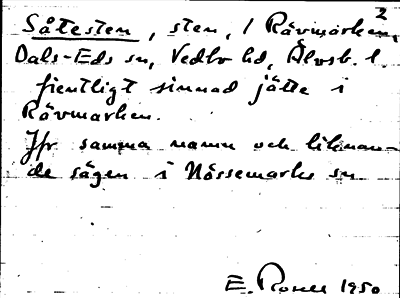 2
Såtesten, sten, i Rävmarken,
Dals-Eds sn, Vedbo hd, Älvsb. l.
fientligt sinnad jätte i
Rävmarken.
Jfr samma namn och liknan-
de sägen i Nössemarks sn
E. 1950